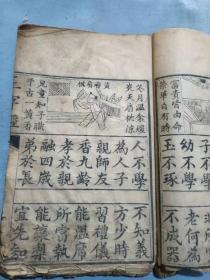 富貴皆由命
子不學
幼不學 老何為
玉不琢 不成器
冬月溫衾煖
炎天扇枕涼
兒童知子職
千古一黃香
人不學 不知義
為人子 方少時
親師友 習禮儀
香九齡 能溫席
孝於親 所當執
融四歲 能讓梨
弟於長 宜先知
三字經